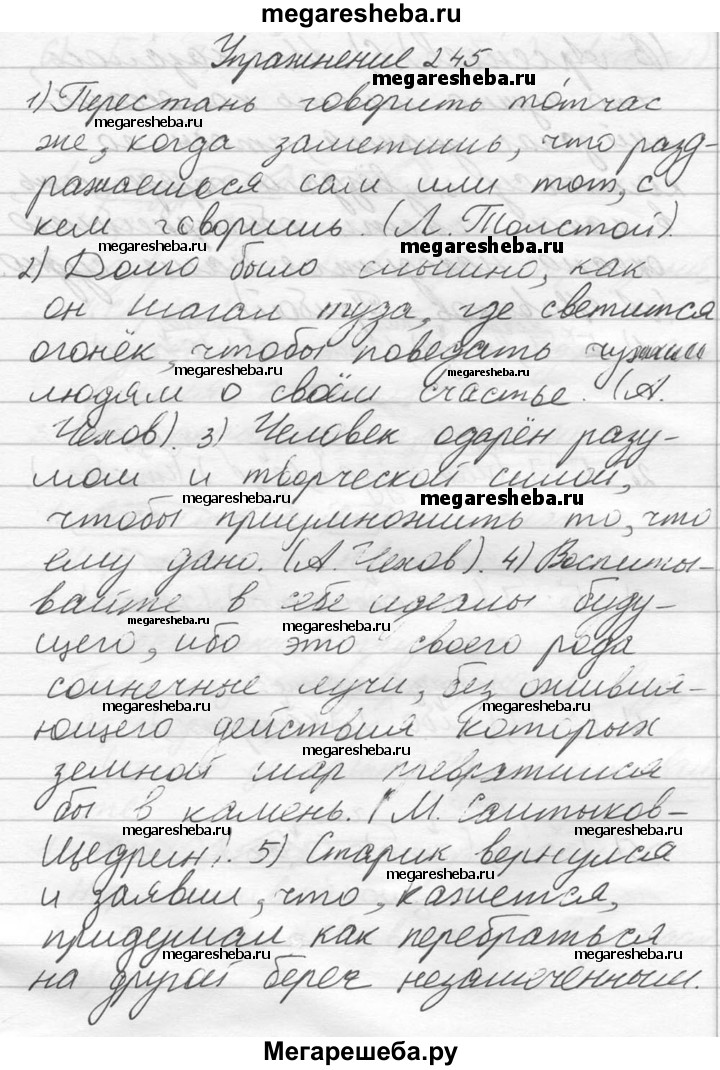 megaresheba.ru
Упражнение 245
megaresheba.ru
1) Перестань говорить то́тчас
megaresheba.ru
же, когда заметишь, что разд-
ражаешься сам или тот, с
кем говоришь. (Л. Толстой).
megaresheba.ru megaresheba.ru
2) Долго было слышно, как
он шагал туда, где светится
огонёк, чтобы поведать чужим
megaresheba.ru megaresheba.ru
людям о своём счастье. (А.
Чехов). 3) Человек одарён разу-
мом и творческой силой,
megaresheba.ru megaresheba.ru
чтобы приумножить то, что
ему дано. (А. Чехов). 4) Воспиты-
вайте в себе идеалы буду-
megaresheba.ru megaresheba.ru
щего, ибо это своего рода
солнечные лучи, без оживля-
megaresheba.ru megaresheba.ru
ющего действия которых
megaresheba.ru
земной шар превратился
бы в камень. (М. Салтыков-
megaresheba.ru megaresheba.ru
Щедрин). 5) Старик вернулся
megaresheba.ru
и заявил, что, кажется,
придумал как перебраться
megaresheba.ru megaresheba.ru
на другой берег незамеченным.
Мегарешеба.ру